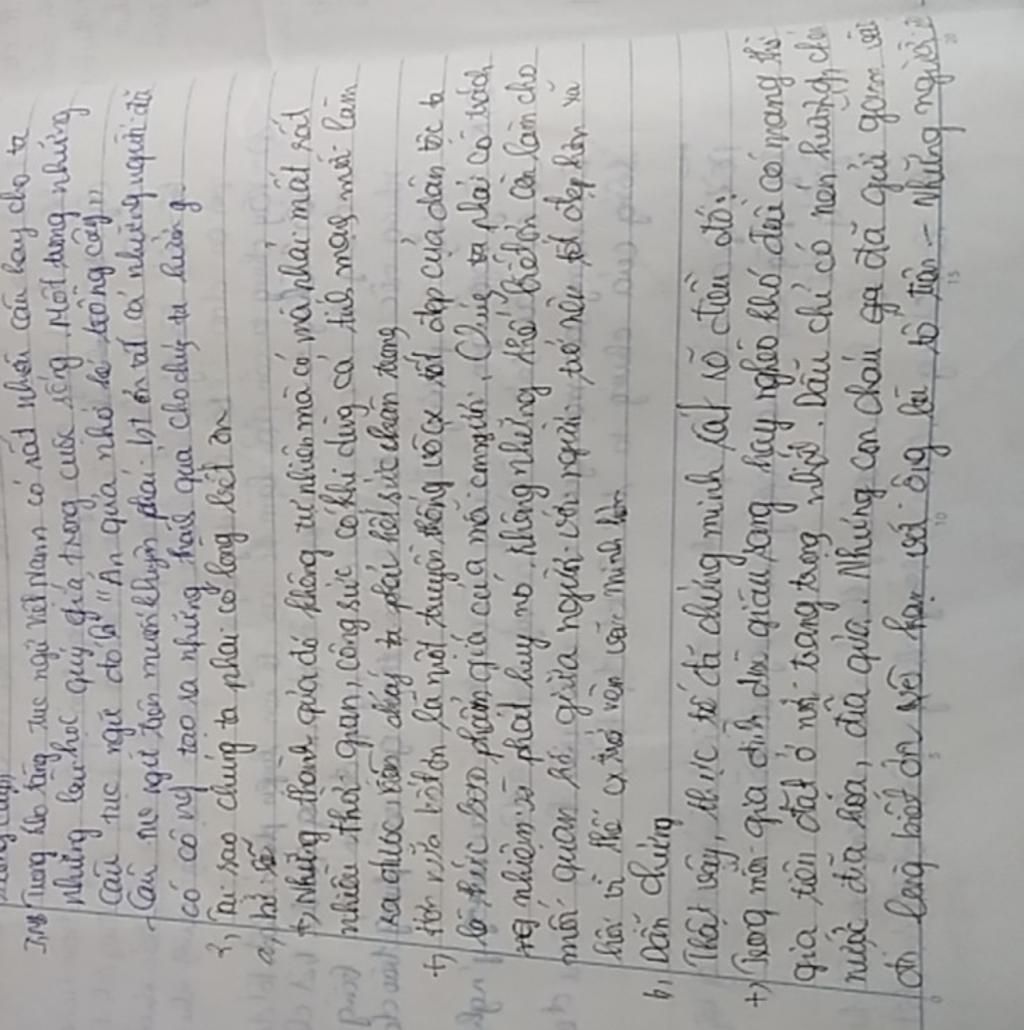 Trong kho tàng tục ngữ Việt Nam có rất nhiều câu hay cho ta
những bài học quý giá trong cuộc sống. Một trong những
câu tục ngữ đó là "Ăn quả nhớ kẻ trồng cây"
- Câu tục ngữ trên muốn khuyên phải bt ơn tất cả những người đã
có công tạo ra những thành quả cho chúng ta hưởng
2, Tại sao chúng ta phải có lòng biết ơn
a,
+) Những thành quả đó không tự nhiên mà có mà phải mất rất
nhiều thời gian, công sức có khi dùng cả tính mạng mới làm
ra được vì vậy ta phải hết sức trân trọng
+) tích vì biết ơn là một truyền thống vô cx tốt đẹp của dân tộc ta
là thước đo phẩm giá của mỗi con người. Chúng ta phải có trách
nhiệm phát huy nó, không những thế biết ơn còn làm cho
mối quan hệ giữa người với người trở nên tốt đẹp hơn xã
hội vì thế cx trở nên văn minh hơn
b, Dẫn chứng
Thật vậy, thực tế đã chứng minh rất rõ điều đó:
+) Trong mỗi gia đình dù giàu sang hay nghèo khó đều có trang thờ
gia tiên đặt ở nơi trang trọng nhất. Dẫu chỉ có nén hương, chén
nước đĩa hoa, đĩa quả. Nhưng con cháu đã gửi gắm
lòng biết ơn vô hạn với ông bà tổ tiên - Những người